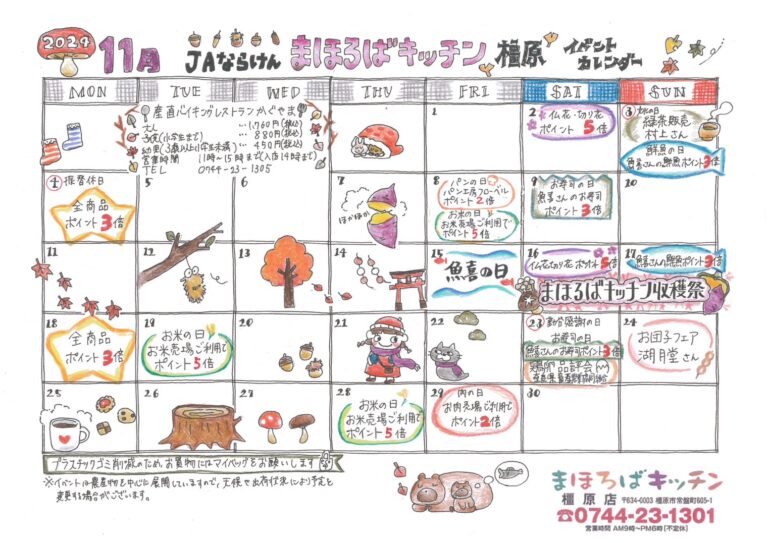 2024 11月 JAならけん まほろばキッチン 橿原 イベントカレンダー
MON TUE WED THU FRI SAT SUN
産直バイキングレストランかぐやま
大人 … 1,760円(税込)
子ども(小学生まで) … 880円(税込)
幼児(3歳以上小学生未満) … 450円(税込)
営業時間 11時~15時まで(入店14時まで)
TEL 0744-23-1305
1
2
仏花・切り花
ポイント5倍
3 文化の日
緑茶販売
村上さん
鮮魚の日
魚喜さんの鮮魚ポイント3倍
4 振替休日
全商品
ポイント3倍
5
6
7
ほかほか
8
パンの日
パン工房フローベル
ポイント2倍
お米の日
お米売場ご利用で
ポイント5倍
9
お寿司の日
魚喜さんのお寿司
ポイント3倍
10
11
12
13
14
15
魚喜の日
16
仏花切り花 ポイント5倍
17
魚喜さんの鮮魚ポイント3倍
まほろばキッチン収穫祭
18
全商品
ポイント3倍
19
お米の日
お米売場ご利用で
ポイント5倍
20
21
22
23 勤労感謝の日
お寿司の日
魚喜さんのお寿司ポイント3倍
24
お団子フェア
湖月堂さん
25
26
27
28
お米の日
お米売場ご利用で
ポイント5倍
29
肉の日
お肉売場ご利用で
ポイント2倍
30
プラスチックゴミ削減のため、お買物にはマイバッグをお願いします
※イベントは農産物を中心に展開していますので、天候や出荷状況により予定を
変更する場合がございます。
まほろばキッチン
橿原店 〒634-0003 橿原市常盤町605-1
☎0744-23-1301
営業時間 AM9時~PM6時[不定休]